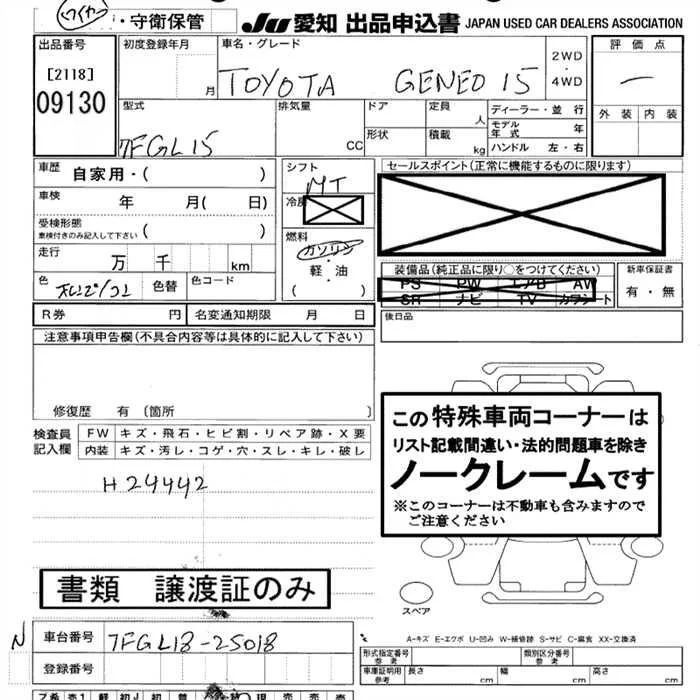 ワイヤー・守衛保管
JU 愛知 出品申込書 JAPAN USED CAR DEALERS ASSOCIATION
出品番号
[2118]
09130
初度登録年月
月
車名・グレード
TOYOTA GENEO 15
2WD
・
4WD
評価点
外装 内装
型式
7FGL15
排気量
CC
ドア
形状
定員
人
積載
kg
ディーラー・並行
モデル年式 年
ハンドル 左・右
車歴 自家用・( )
車検 年 月( 日)
受検形態
車検付きのみ記入して下さい ( )
走行 万 千 km
色 色替 色コード
シフト
MT
冷房
燃料
ガソリン
・
軽・油
( )
セールスポイント(正常に機能するものに限ります)
装備品(純正品に限り○をつけてください)
PS PW エアB AW
SR ナビ TV カワシート
新車保証書
有・無
R券 円 名変通知期限 月 日
後日品
注意事項申告欄(不具合内容等は具体的に記入して下さい)
修復歴 有〔箇所 〕
検査員
記入欄
FW キズ・飛石・ヒビ割・リペア跡・X要
内装 キズ・汚レ・コゲ・穴・スレ・キレ・破レ
H24442
この特殊車両コーナーは
リスト記載間違い・法的問題車を除き
ノークレームです
※このコーナーは不動車も含みますので
ご注意ください
書類 譲渡証のみ
スペア
N 車台番号 7FGL18-25018
登録番号
A-キズ E-エクボ U-凹み W-補修跡 S-サビ C-腐食 XX-交換済
形式指定番号
参考
類別区分番号
参考
車庫証明用
参考
長さ 幅 高さ